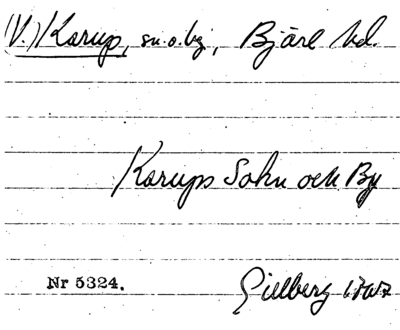 (V.) Karup, sn. o. by, Bjäre hd.
Karups Sokn och By
Nr 5324. Gillberg